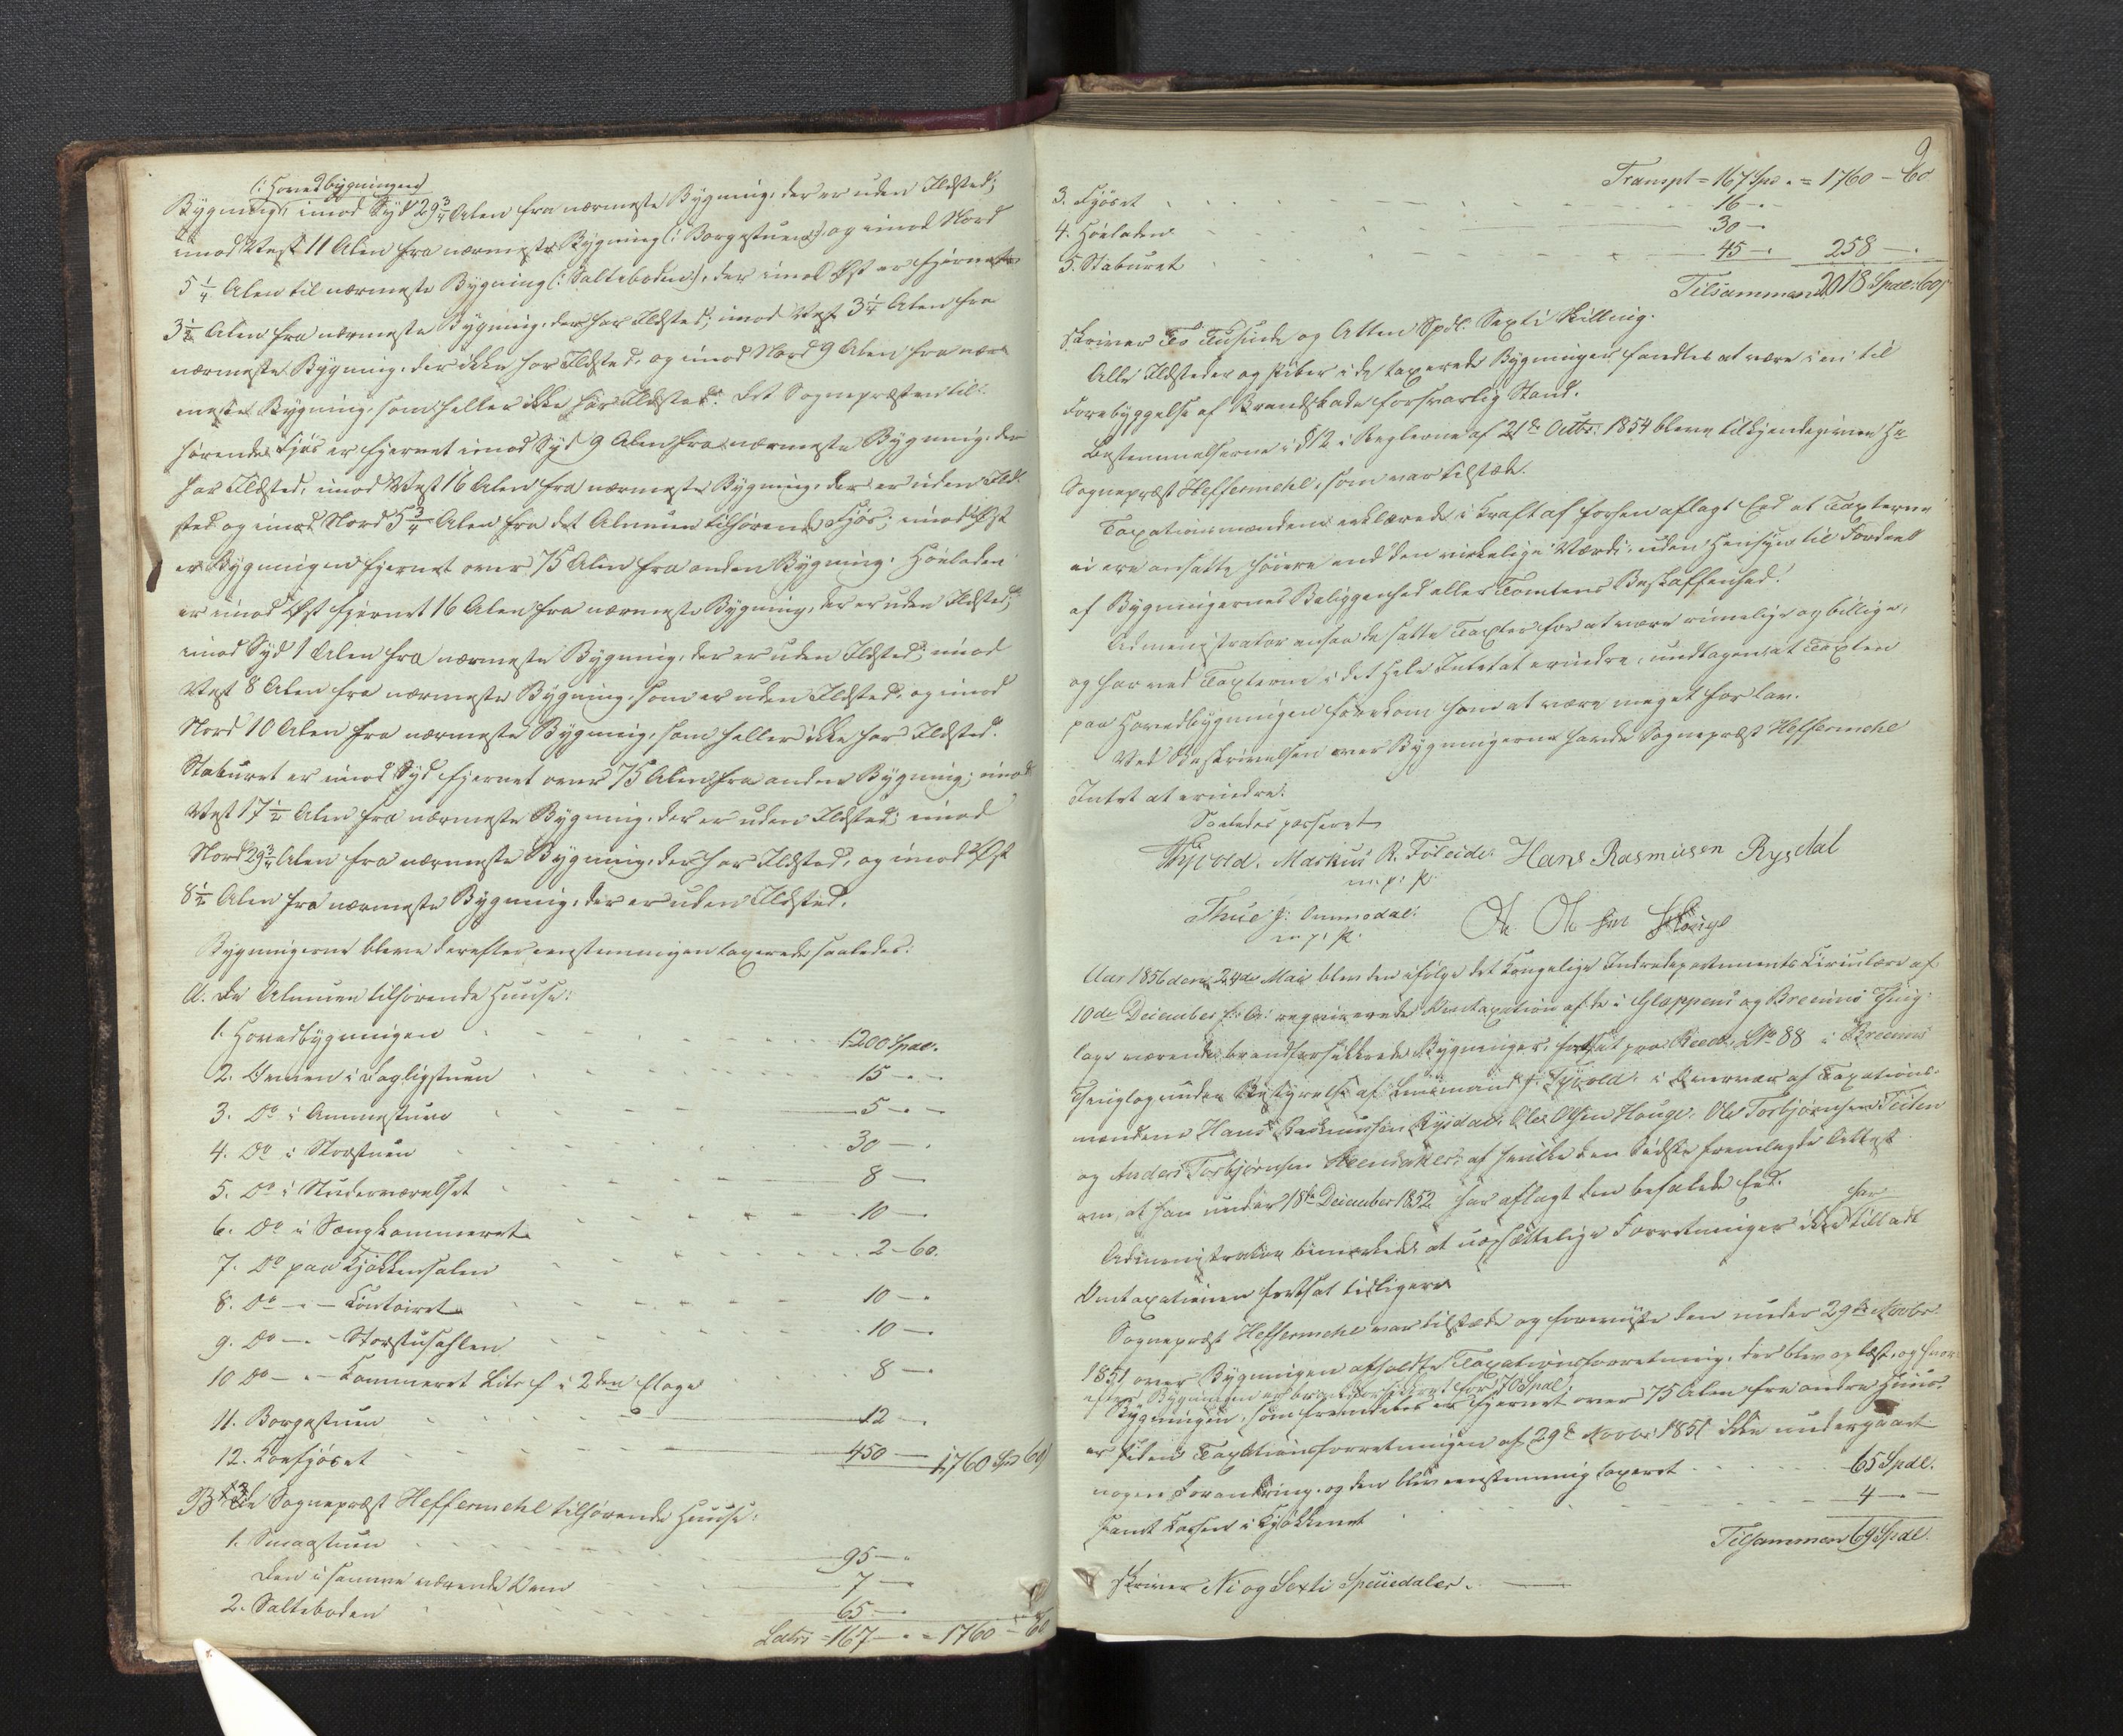 (: Hovedbygningen)
Bygning, imod Syd 29 3/4 Alen fra nærmeste Bygning, der er uden Ildsted;
imod Vest 11 Alen fra nærmeste Bygning (: Borgestuen:) og imod Nord
5 1/4 Alen til nærmeste Bygning (: Salteboden), der imod Øst er fjernet
3 1/2 Alen fra nærmeste Bygning, der har Ildsted; imod Vest 3 1/4 Alen fra
nærmeste Bygning, der ikke har Ildsted, og imod Nord 9 Alen fra nær-
meste Bygning, som heller ikke har Ildsted. Det Sognepræsten til-
hørende Fjøs er fjernet imod Syd 9 Alen fra nærmeste Bygning, der
har Ildsted, imod Vest 16 Alen fra nærmeste Bygning, der er uden Ild-
sted og imod Nord 5 3/4 Alen fra det Almuen tilhørende Fjøs; imod Øst
er Bygningen fjernet over 75 Alen fra anden Bygning. Høeladen
er imod Øst fjernet 16 Alen fra nærmeste Bygning, der er uden Ildsted;
imod Syd 1 Alen fra nærmeste Bygning, der er uden Ildsted; imod
Vest 8 Alen fra nærmeste Bygning, som er uden Ildsted, og imod
Nord 10 Alen fra nærmeste Bygning, som heller ikke har Ildsted.
Staburet er imod Syd fjernet over 75 Alen fra anden Bygning; imod
Vest 17 1/2 Alen fra nærmeste Bygning, der er uden Ildsted; imod
Nord 29 3/4 Alen fra nærmeste Bygning, der har Ildsted, og imod Øst
8 1/2 Alen fra nærmeste Bygning, der er uden Ildsted.
Bygningerne bleve derefter eenstemmigen taxerede saaledes:
A. De Almuen tilhørende Huuse:
1. Hovedbygningen 1200 Spdl.
2. Ovnen i Dagligstuen 15 - -
3. Do i Ammestuen 5 - -
4. Do i Storstuen 30 - -
5. Do i Studerværelset 8 -
6. Do i Sængkammeret 10 -
7. Do paa Kjøkkensalen 2 - 60.
8. Do - - Contoiret 10 -
9. Do - - Storstusahlen 10 -
10 Do - - Kammeret Litr f i 2den Etage 8 -
11. Borgestuen 12 -
12. Koefjøset 450 - 1,760 Spd 60
B De Sognepræst Heffermehl tilhørende Huuse:
1. Smaastuen 95 -
Den i samme værende Ovn 7 -
2. Salteboden 65 -
Latus = 167 - = 1760 - 60
9
Transpt = 167 Spd = 1760 - 60
3. Fjøset 16 - -
4. Høeladen 30 -
5. Staburet 45 - 258 -
Tilsammen 2018 Spdl. 60
skriver To Tusinde og Atten Spdl. Sexti Skilling.
Alle Ildsteder og Piber i de taxerede Bygninger fandtes at være i en til
Forebyggelse af Brandskade forsvarlig Stand.
Bestemmelserne i § 12 i Reglerne af 21de Octbr. 1854 bleve tilkjendegivne Hr
Sognepræst Heffermehl, som var tilstede.
Taxationsmændene erklærede i Kraft af forhen aflagt Eed at Taxterne
ei ere ansatte høiere end den virkelige Værdi, uden Hensyn til Fordeel
af Bygningernes Beliggenhed eller Tomtens Beskaffenhed.
Administrator ansaa de satte Taxter for at være rimelige og billige,
og har ved Taxterne i det Hele Intet at erindre, undtagen at Taxten
paa Hovedbygningen forekom ham at være meget for lav.
Ved Beskrivelsen over Bygningerne havde Sognepræst Heffermehl
Intet at erindre.
Saaledes passeret
Markus R. Føleide. Hans Rasmusen Rysdal
m. p. P.
Thue J: Ommedal:
m. p. P.
Aar 1856 den 24de Mai blev den ifølge det Kongelige Indredepartements Circulære af
10de December f: A: reqvirerede Omtaxation af de i Gloppens og Breims Thing-
lage værende brandforsikkrede Bygninger, fortsat paa Reed, No 88 i Breims
Thinglag under Bestyrelse af Leensmand J. Tyvold, i Overvær af Taxations-
mændene Hans Rasmussen Rysdal, Ole Olsen Hauge, Ole Torbjørnsen
og Anders Torbjørnsen af hvilke den Sidste fremlagde Attest
om, at han under 18de December 1852 har aflagt den befalede Eed.
Administrator bemærkede at uopsættelige Forretninger ikke har tilladt
Omtaxationen fortsat tidligere.
Sognepræst Heffermehl var tilstede og foreviste den under 29de Novbr.
1851 over Bygningen afholdte Taxationsforretning, der blev oplæst, og hvor-
efter Bygningen er brandforsikkret for 70 Spdl.
Bygningen, som fremdeles er fjernet over 75 Alen fra andre Huus,
er siden Taxationsforretningen af 29de Novbr 1851 ikke undergaaet
nogen Forandring, og den blev eenstemmig taxeret 65 Spdl.
samt Kakkelovnen i Kjøkkenet 4 - -
Tilsammen 69 Spdl.
skriver Ni og Sexti Speciedaler.